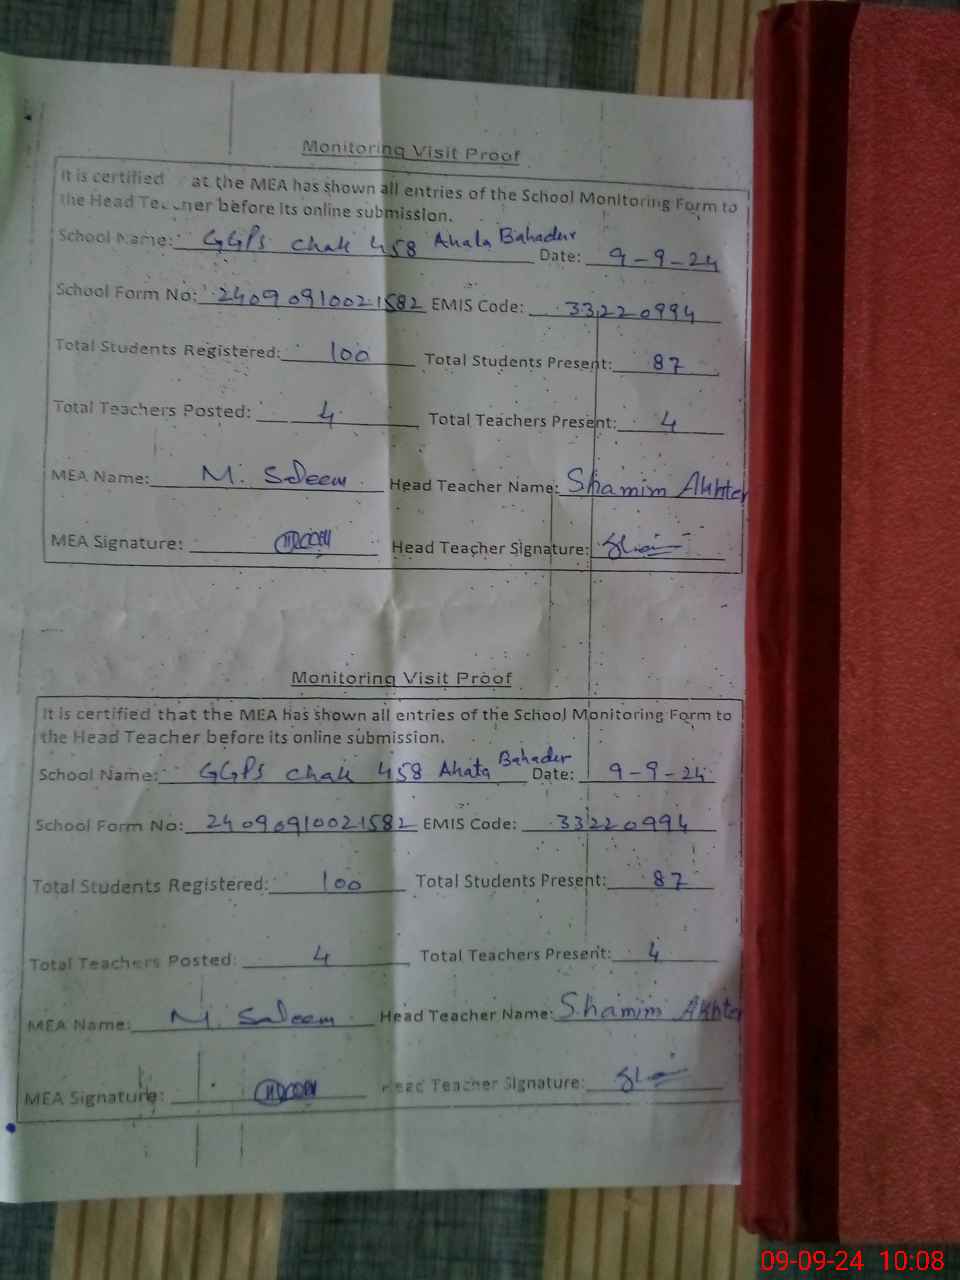 Monitoring Visit Proof
It is certified at the MEA has shown all entries of the School Monitoring Form to
the Head Teacher before its online submission.
School Name: GGPS Chak 458 Ahata Bahadur Date: 9-9-24
School Form No: 24090910021582 EMIS Code: 33220994
Total Students Registered: 100 Total Students Present: 87
Total Teachers Posted: 4 Total Teachers Present: 4
MEA Name: M. Saleem Head Teacher Name: Shamim Akhter
MEA Signature: Head Teacher Signature:
Monitoring Visit Proof
It is certified that the MEA has shown all entries of the School Monitoring Form to
the Head Teacher before its online submission.
School Name: GGPS Chak 458 Ahata Bahadur Date: 9-9-24
School Form No: 24090910021582 EMIS Code: 33220994
Total Students Registered: 100 Total Students Present: 87
Total Teachers Posted: 4 Total Teachers Present: 4
MEA Name: M. Saleem Head Teacher Name: Shamim Akhter
MEA Signature: Head Teacher Signature:
09-09-24 10:08